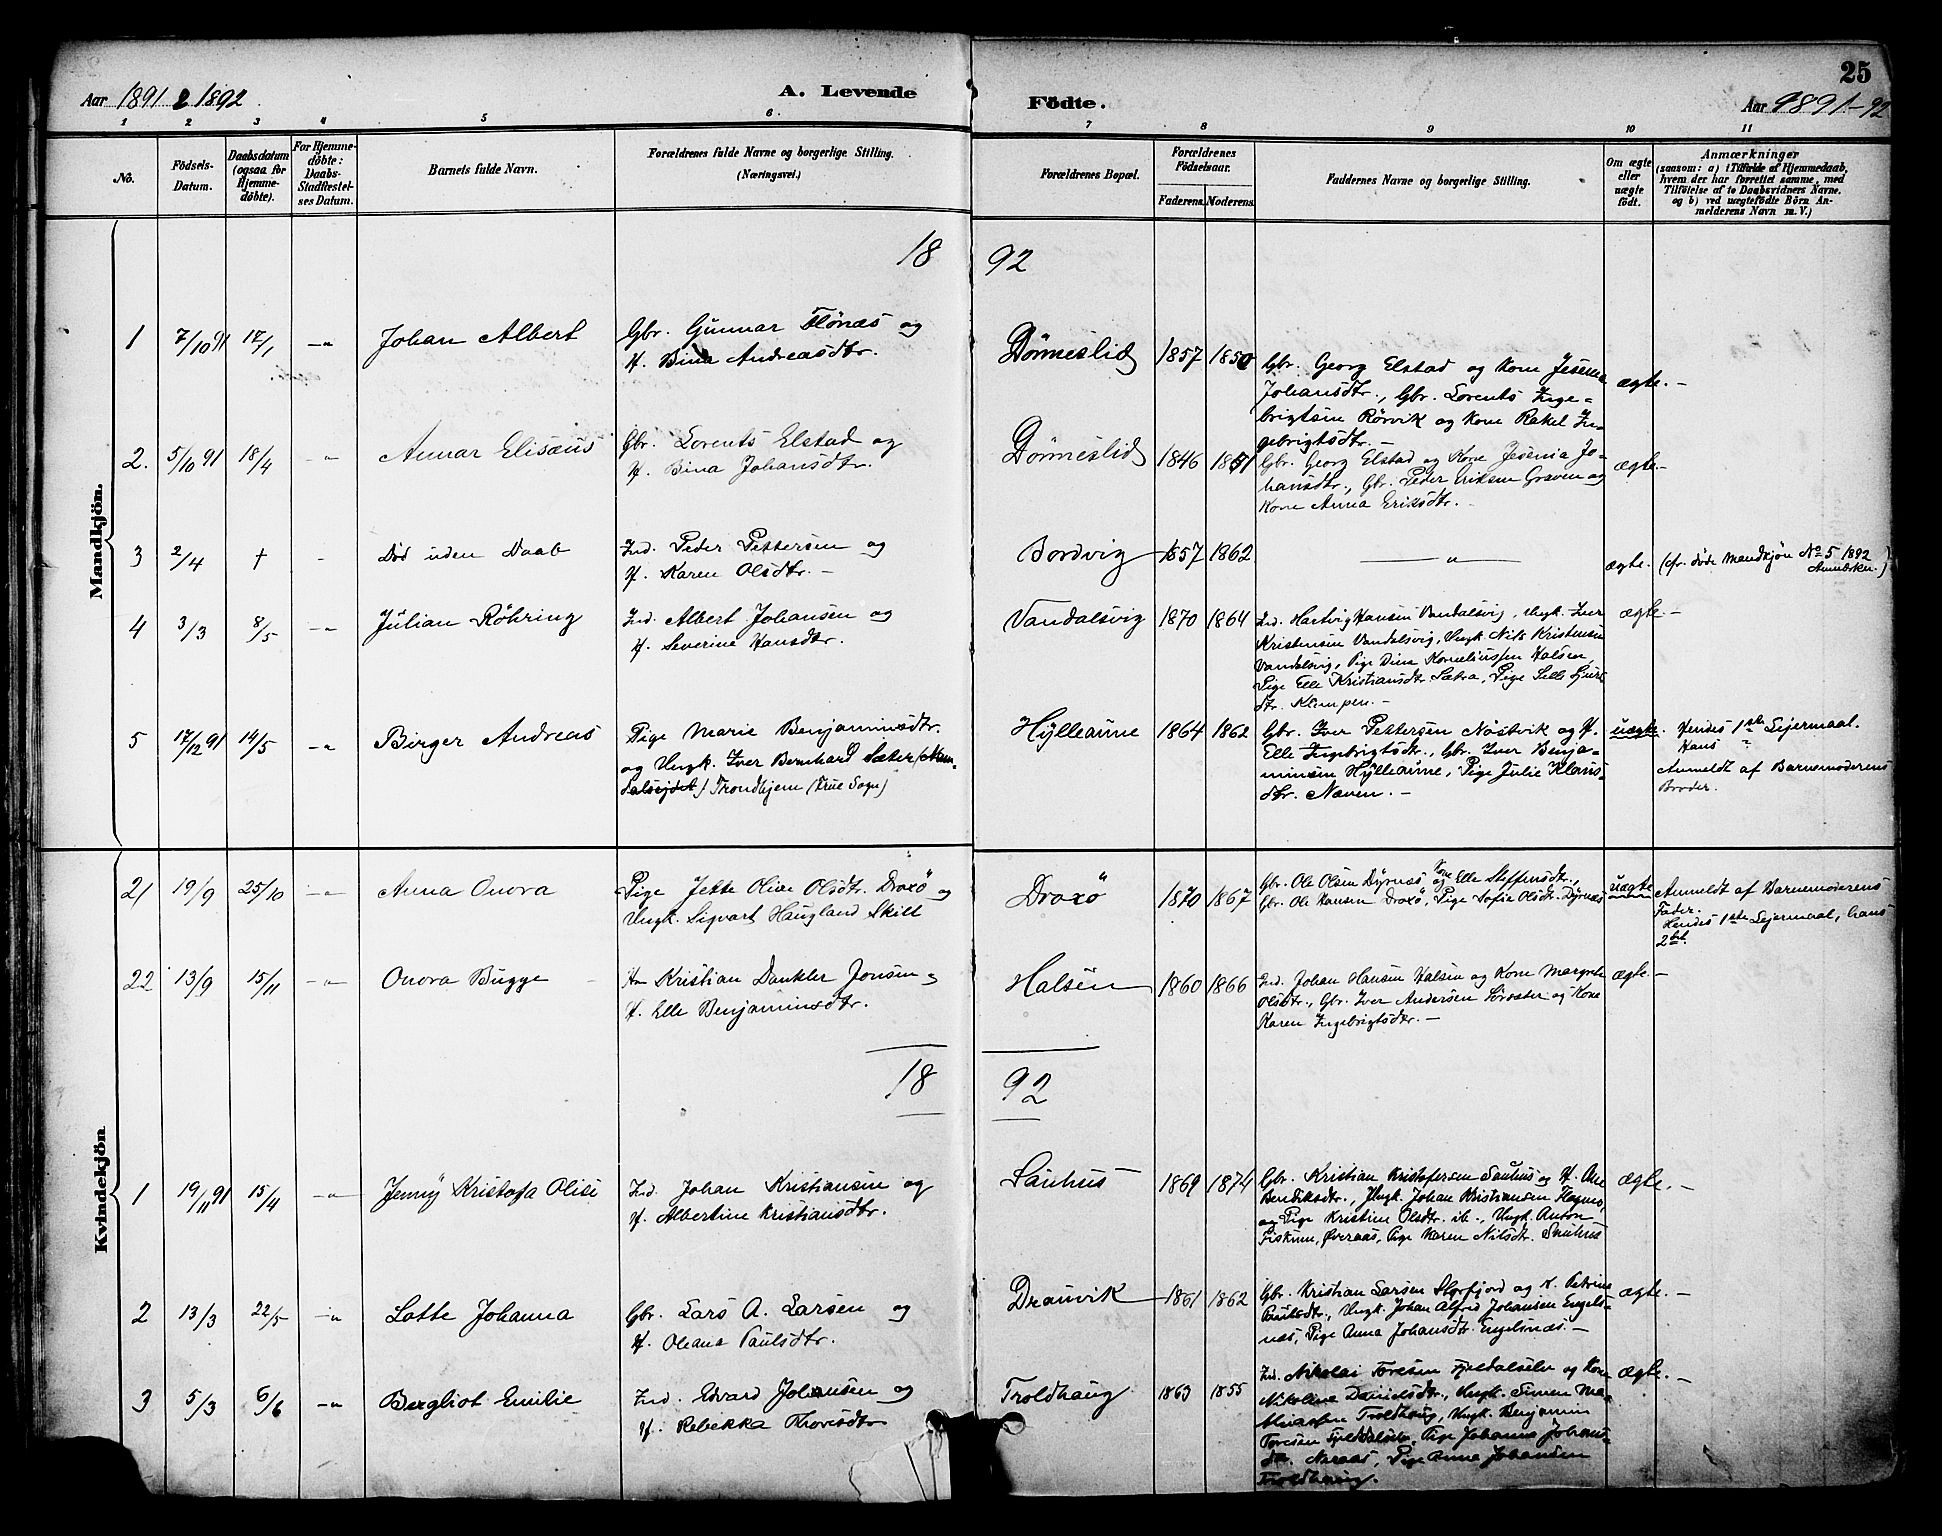 Aar 1891 & 1892.
A. Levende
Födte.
25
Aar 1891-92
1 2 3 4 5 6 7 8 9 10 11
No.
Födsels-
Datum.
Daabsdatum
(ogsaa for
Hjemme-
döbte).
For Hjemme-
döbte:
Daabs-
Stadfæstel-
ses Datum.
Barnets fulde Navn.
Forældrenes fulde Navne og borgerlige Stilling.
(Næringsvei.)
Forældrenes Bopæl.
Forældrenes
Födselsaar.
Faderens. Moderens.
Faddernes Navne og borgerlige Stilling.
Om ægte
eller
uægte
födt.
Anmærkninger
(saasom: a) i Tilfælde af Hjemmedaab,
hvem der har forrettet samme, med
Tilföielse af to Daabsvidners Navne.
og b) ved uægtefödte Börn An-
melderens Navn m. V.)
Mandkjön.
18 92
1 7/10 91 17/1 -"- Johan Albert
Gbr. Gunnar Flönæs og
H. Bina Andreasdtr.
Dönneslid 1857 1850
Gbr. Georg Elstad og Kone Jesenia
Johansdtr., Gbr. Lorents Inge-
brigtsen Rörvik og Kone Rakel In-
gebrigtsdtr. -
ægte. -
2. 5/10 91 18/4 " Annar Elisæus
Gbr. Lorents Elstad og
H. Bina Johansdtr.
Dönneslid 1846 1851
Gbr. Georg Elstad og Kone Jesenia Jo-
hansdtr., Gbr. Peder Eriksen Graven og
Kone Anna Eriksdtr. -
ægte. -
3 2/4 † - Död uden Daab
Ind. Peder Pettersen og
H. Karen Olsdtr. -
Bordvig 1857 1862
— " —
ægte. (cfr. döde Mandkjön No 5 1892
Anmærkn.)
4 3/3 8/5 -"- Julian Röhring
Ind. Albert Johansen og
H. Severine Hansdtr.
Vandalsvig 1870 1864
Ind. Hartvig Hansen Vandalsvig, Ungk. Iver
Kristensen Vandalsvig, Ungk. Nils Kristensen
Vandalsvig, Pige Dina Korneliussen Halsen,
Pige Elle Kristiansdtr Sætra, Pige Selle Sjurs-
dtr. Klimpen. -
ægte. -
5 17/12 91 14/5 -"- Birger Andreas
Pige Marie Benjaminsdtr.
og Ungk. Iver Bernhard Sæter (Nam-
salseidet) Trondhjem (Frue Sogn)
Hylleaune 1864 1862
Gbr. Iver Pettersen Nöstvik og H.
Elle Ingebrigtsdtr., Gbr. Iver Benja-
minsen Hylleaune, Pige Julie Klaus-
dtr. Næven. -
uægte. Hendes 1ste Leiermaal.
Hans "
Anmeldt af Barnemoderens
Broder.
Kvindekjön
21 19/9 25/10 -"- Anna Onora
Pige Jette Olive Olsdtr. Draxö og
Ungk. Sigvart Haugland Skilt
Draxö 1870 1867
Gbr. Ole Olsen Dyrnæs og Kone Elle Steffensdtr.,
Gbr. Ole Hansen Draxö, Pige Sofie Olsdtr. Dyrnæs
uægte Anmeldt af Barnemoderens
Fader.
Hendes 1ste Leiermaal, hans
2det.
22 13/9 15/11 -"- Onora Bugge
Kristian Dankler Jensen og
H. Elle Benjaminsdtr.
Halsen 1860 1866
Ind. Johan Hansen Halsen og Kone Margrete
Olsdtr., Gbr. Iver Andersen Sörsæter og Kone
Karen Ingebrigtsdtr. -
ægte. -
18 92
1 19/11 91 15/4 -"- Jenny Kristofa Olise
Ind. Johan Kristiansen og
H. Albertine Kristiansdtr.
Sauhus 1869 1874
Gbr. Kristian Kristofersen Sauhus og H. Ane
Bendiksdtr., Ungk. Johan Kristiansen Flagmo,
og Pige Kristine Olsdtr. ib., Ungk. Anton
Fiskum, Överaas, Pige Karen Nilsdtr. Sauhus
ægte. -
2 13/3 22/5 -"- Lotte Johanna
Gbr. Lars A. Larsen og
H. Oleana Paulsdtr.
Drauvik 1861 1862
Gbr. Kristian Larsen Storfjord og K. Petrine
Paulsdtr., Ungk. Johan Alfred Johansen Engels-
næs, Pige Anna Johansdtr. Engelsnæs. -
ægte. -
3 5/3 6/6 -"- Bergliot Emilie
Ind. Edvard Johansen og
H. Rebekka Thoresdtr
Troldhaug 1863 1855
Ind. Nikolai Toresen Fjeldalselv og Kone
Nikoline Danielsdtr., Ungk. Simen Ma-
thiassen Troldhaug, Ungk. Benjamin
Toresen Fjeldalselv, Pige Johanna Johans-
dtr. Naraas, Pige Anna Johansen
Troldhaug.
ægte. -